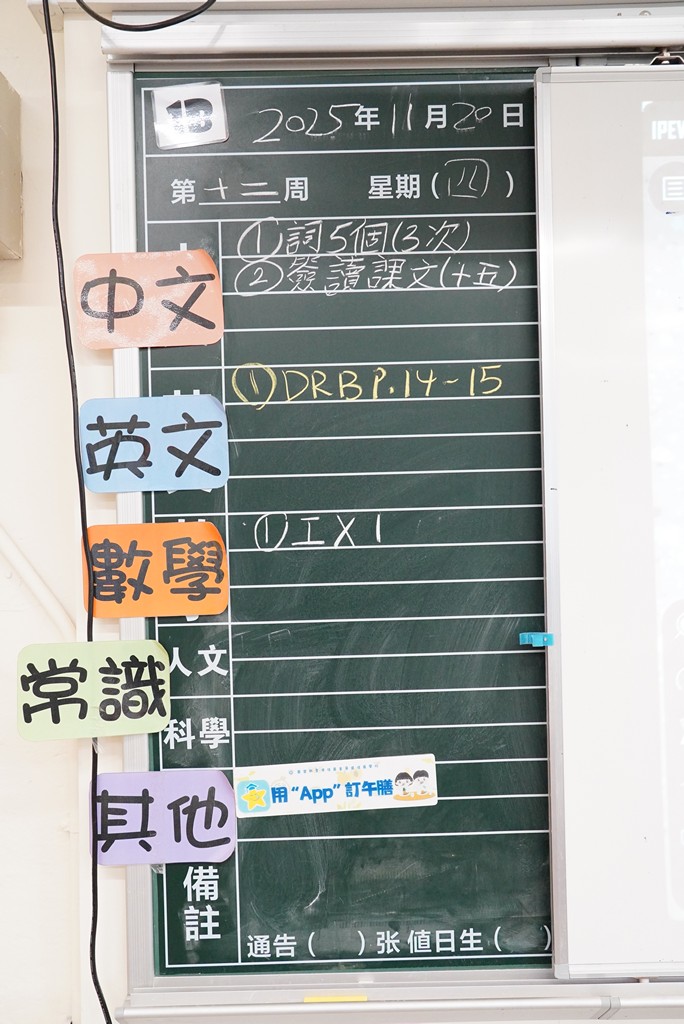 1B
2025年11月20日
第十二周 星期(四)
中文
①詞5個(3次)
②簽讀課文(十五)
英文
①DRB P.14-15
數學
①工X1
人文
常識
科學
其他
用“App”訂午膳
備註
通告( )张 值日生( )
IPEV